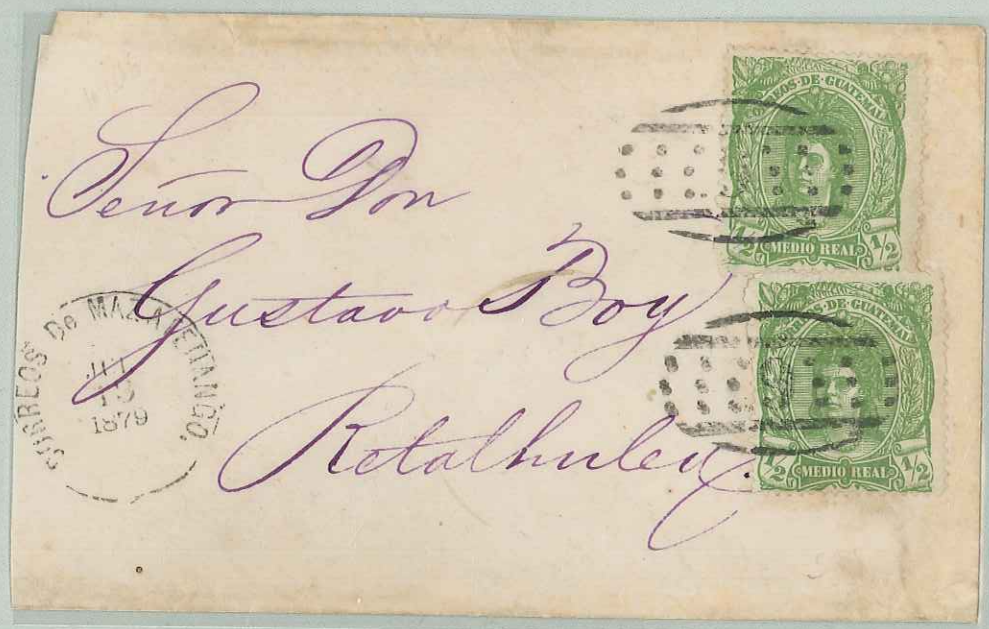 Señor Don
Gustavo Boy
Retalhuleu.
CORREOS De MAZATENANGO.
JUL
19
1879
CORREOS·DE·GUATEMALA
1/2 MEDIO REAL 1/2
CORREOS·DE·GUATEMALA
1/2 MEDIO REAL 1/2